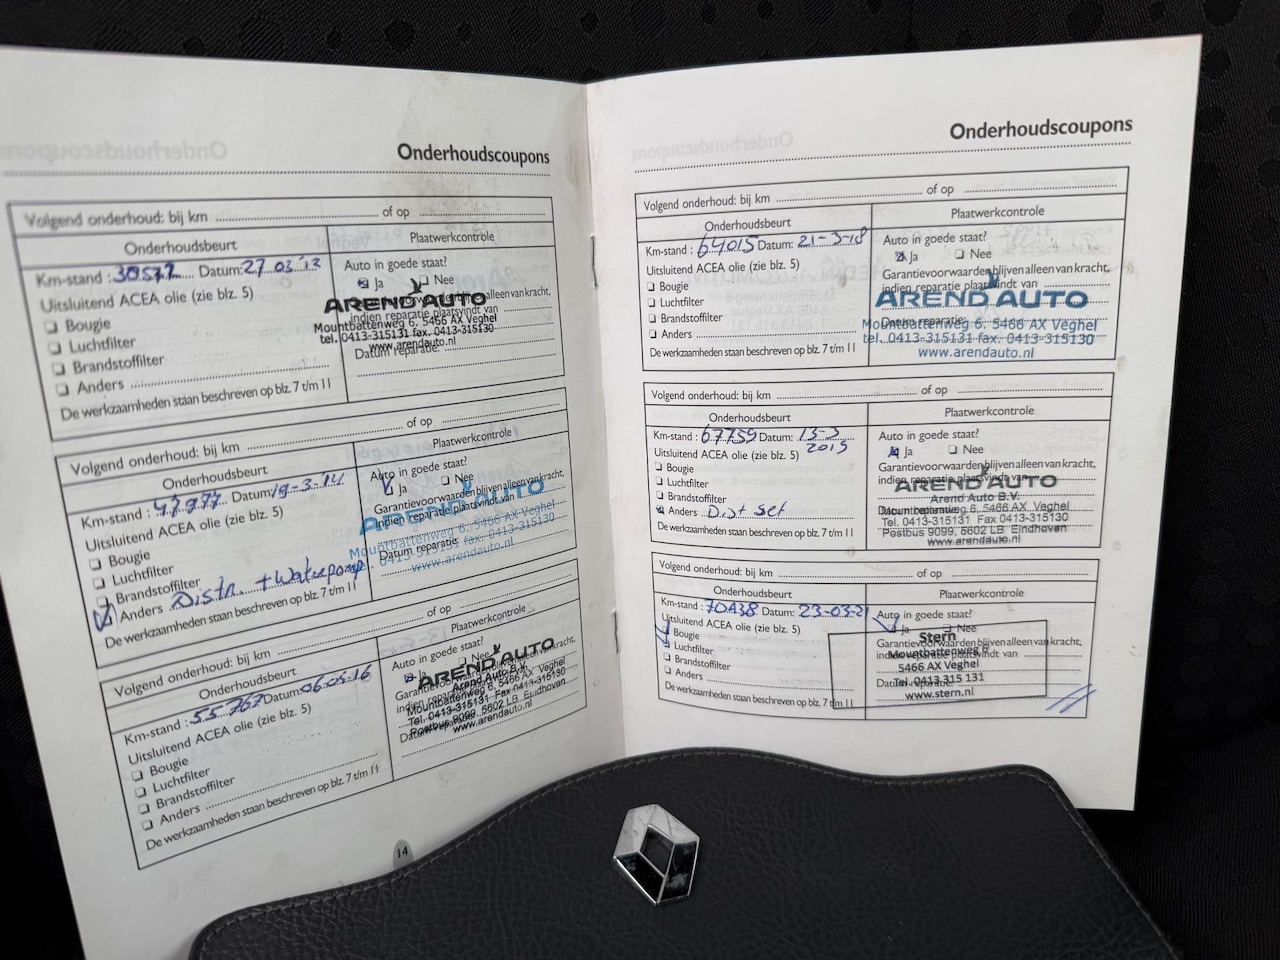 Onderhoudscoupons
Volgend onderhoud: bij km ........ of op ........
Onderhoudsbeurt
Plaatwerkcontrole
Km-stand : Datum: 27 03 '13
Auto in goede staat?
Ja Nee
Uitsluitend ACEA olie (zie blz. 5)
Garantievoorwaarden blijven alleen van kracht,
indien reparatie plaatsvindt van
Bougie
Luchtfilter
Brandstoffilter
Anders ........
Datum reparatie:
AREND AUTO
Mountbattenweg 6. 5466 AX Veghel
tel. 0413-315131 fax. 0413-315130
www.arendauto.nl
De werkzaamheden staan beschreven op blz. 7 t/m 11
Volgend onderhoud: bij km ........ of op ........
Onderhoudsbeurt
Plaatwerkcontrole
Km-stand : 47977 Datum: 19-3-14
Auto in goede staat?
Ja Nee
Uitsluitend ACEA olie (zie blz. 5)
Garantievoorwaarden blijven alleen van kracht,
indien reparatie plaatsvindt van
Bougie
Luchtfilter
Brandstoffilter
Anders Distr. + Waterpomp
Datum reparatie:
AREND AUTO
Mountbattenweg 6. 5466 AX Veghel
tel. 0413-315131 fax. 0413-315130
www.arendauto.nl
De werkzaamheden staan beschreven op blz. 7 t/m 11
Volgend onderhoud: bij km ........ of op ........
Onderhoudsbeurt
Plaatwerkcontrole
Km-stand : 55767 Datum: 06-05-16
Auto in goede staat?
Ja Nee
Uitsluitend ACEA olie (zie blz. 5)
Bougie
Luchtfilter
Brandstoffilter
Anders ........
ARENDAUTO
Arend Auto B.V.
Mountbattenweg 6, 5466 AX Veghel
Tel. 0413-315131 Fax 0413-315130
Postbus 9099, 5602 LB Eindhoven
www.arendauto.nl
De werkzaamheden staan beschreven op blz. 7 t/m 11
14
Onderhoudscoupons
Volgend onderhoud: bij km ........ of op ........
Onderhoudsbeurt
Plaatwerkcontrole
Km-stand : 64015 Datum: 21-3-18
Auto in goede staat?
Ja Nee
Uitsluitend ACEA olie (zie blz. 5)
Garantievoorwaarden blijven alleen van kracht,
indien reparatie plaatsvindt van
Bougie
Luchtfilter
Brandstoffilter
Anders ........
Datum reparatie:
AREND AUTO
Mountbattenweg 6. 5466 AX Veghel
tel. 0413-315131 fax. 0413-315130
www.arendauto.nl
De werkzaamheden staan beschreven op blz. 7 t/m 11
Volgend onderhoud: bij km ........ of op ........
Onderhoudsbeurt
Plaatwerkcontrole
Km-stand : 67759 Datum: 13-3
Auto in goede staat?
Ja Nee
Uitsluitend ACEA olie (zie blz. 5)
Garantievoorwaarden blijven alleen van kracht,
indien reparatie plaatsvindt van
Bougie
Luchtfilter
Brandstoffilter
Anders Dist set
ARENDAUTO
Arend Auto B.V.
Mountbattenweg 6, 5466 AX Veghel
Tel. 0413-315131 Fax 0413-315130
Postbus 9099, 5602 LB Eindhoven
www.arendauto.nl
De werkzaamheden staan beschreven op blz. 7 t/m 11
Volgend onderhoud: bij km ........ of op ........
Onderhoudsbeurt
Plaatwerkcontrole
Km-stand : 70438 Datum: 23-03-21
Auto in goede staat?
Ja Nee
Uitsluitend ACEA olie (zie blz. 5)
Garantievoorwaarden blijven alleen van kracht,
indien reparatie plaatsvindt van
Bougie
Luchtfilter
Brandstoffilter
Anders ........
Stern
Mountbattenweg 6
5466 AX Veghel
Tel. 0413 315 131
www.stern.nl
De werkzaamheden staan beschreven op blz. 7 t/m 11